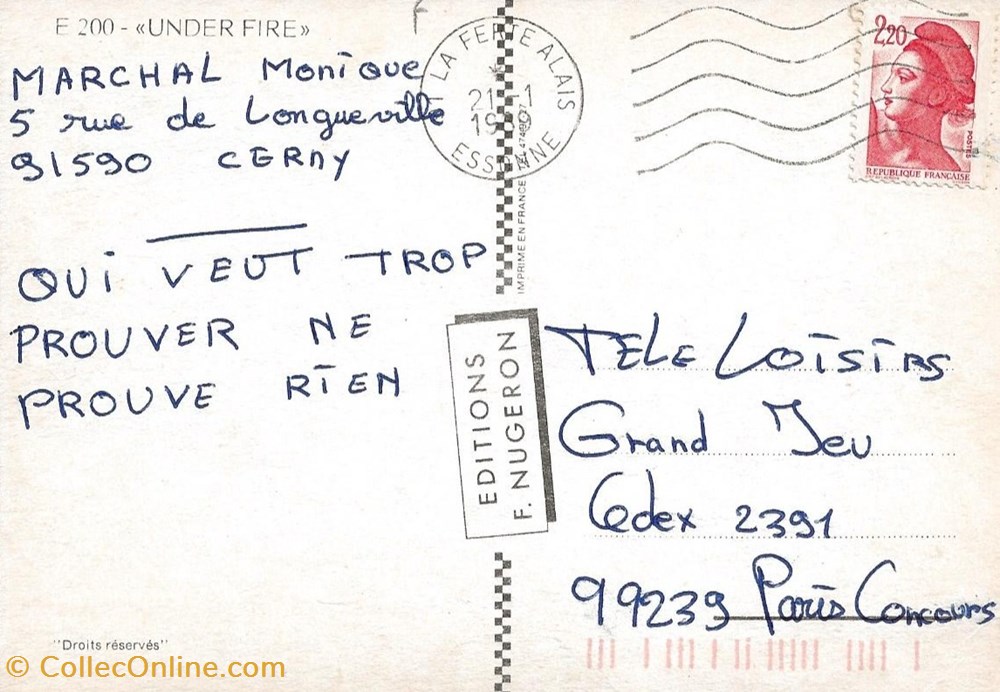 E 200 - «UNDER FIRE»
MARCHAL Monique
5 rue de Longueville
91590 CERNY
QUI VEUT TROP
PROUVER NE
PROUVE RIEN
LA FERTE ALAIS
21-1
ESSONNE
2,20
POSTES
REPUBLIQUE FRANÇAISE
IMPRIME EN FRANCE
EDITIONS
F. NUGERON
TELE LOISIRS
Grand Jeu
Cedex 2391
99239 Paris Concours
"Droits réservés"
© CollecOnline.com